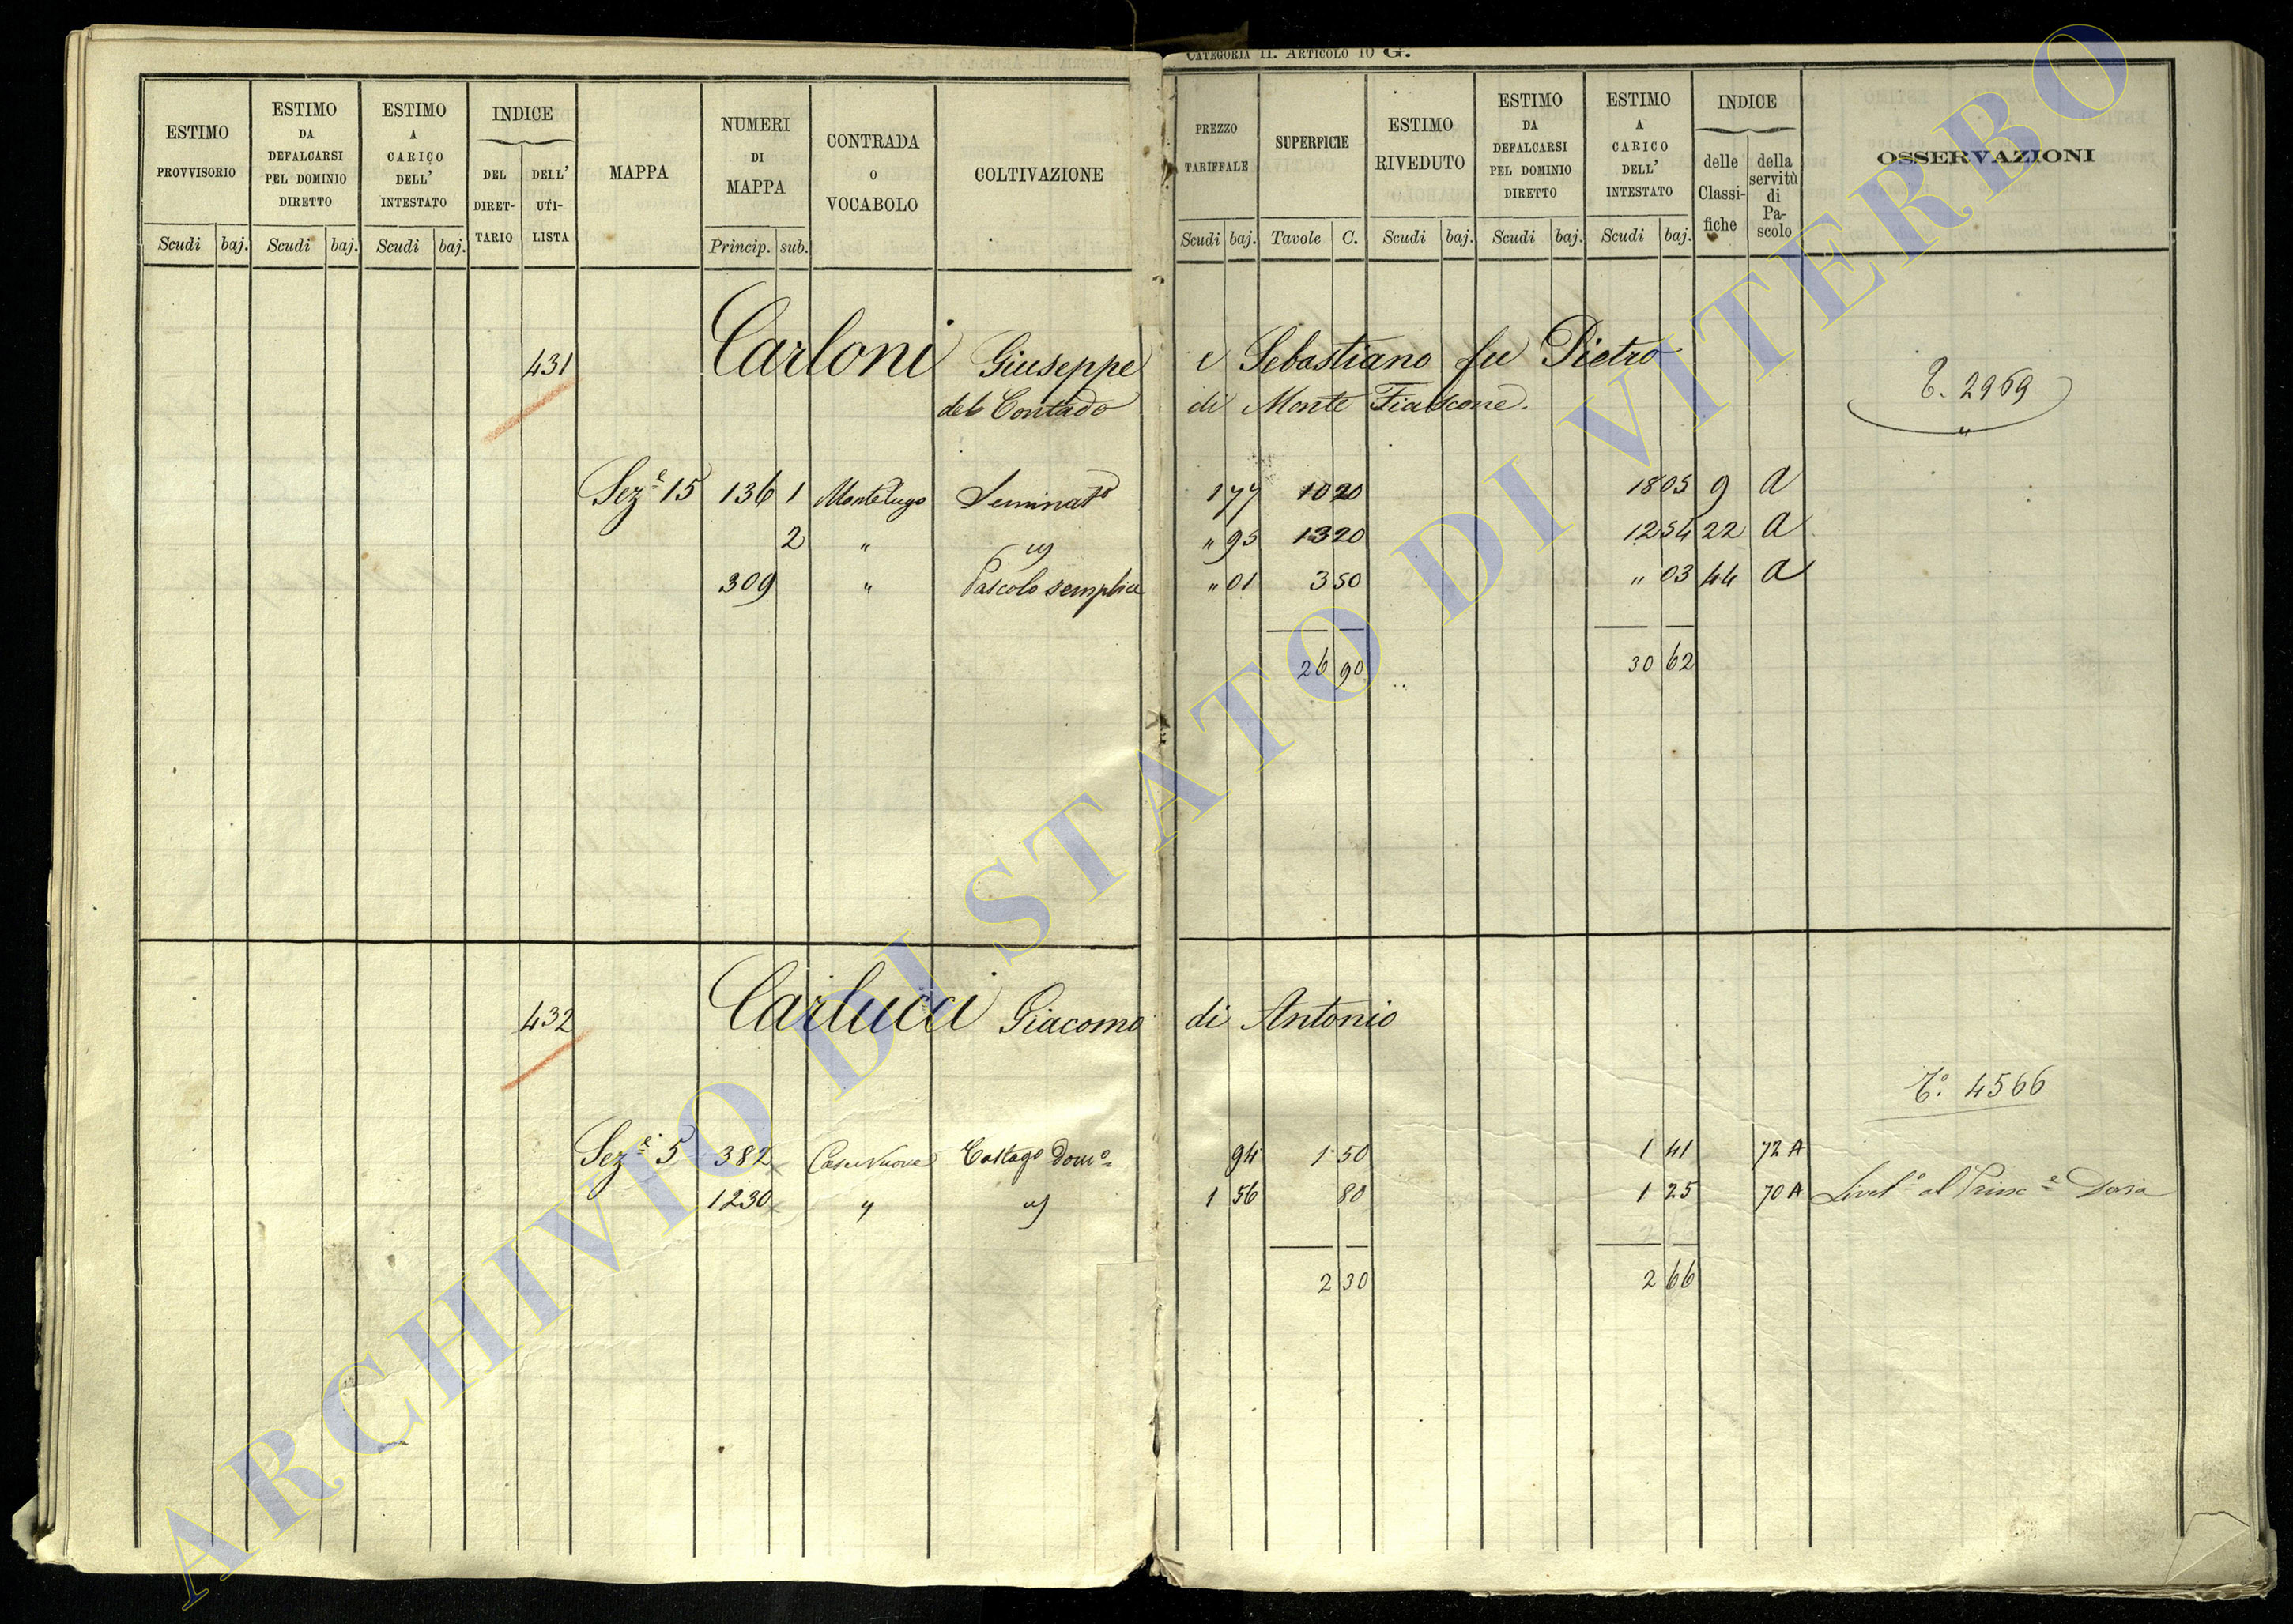 CATEGORIA II. ARTICOLO 10 G.
ESTIMO PROVVISORIO | ESTIMO DA DEFALCARSI PEL DOMINIO DIRETTO | ESTIMO A CARICO DELL' INTESTATO | INDICE DEL DIRETTARIO | DELL' UTILISTA | MAPPA | NUMERI DI MAPPA | CONTRADA O VOCABOLO | COLTIVAZIONE | PREZZO TARIFFALE | SUPERFICIE | ESTIMO RIVEDUTO | ESTIMO DA DEFALCARSI PEL DOMINIO DIRETTO | ESTIMO A CARICO DELL' INTESTATO | INDICE delle Classifiche | della servitù di Pascolo | OSSERVAZIONI
Scudi | baj. | Scudi | baj. | Scudi | baj. | Princip. | sub. | Scudi | baj. | Tavole | C. | Scudi | baj. | Scudi | baj. | Scudi | baj.
431 Carloni Giuseppe e Sebastiano fu Pietro
del Contado di Monte Fiascone. T. 2969
"
Sez.e 15 136 1 Montelugo Seminato 1 77 10 20 18 05 9 A
2 " " 95 13 20 12 54 22 A
309 " Pascolo semplice " 01 3 50 " 03 44 A
26 90 30 62
432 Carlucci Giacomo di Antonio
T.o 4566
Sez.e 5 382 Case Nuove Castag.o Dom.o 94 1 50 1 41 72 A
1230 " 1 56 80 1 25 70 A Livel.o al Princ.e Doria
2 30 2 66
ARCHIVIO DI STATO DI VITERBO